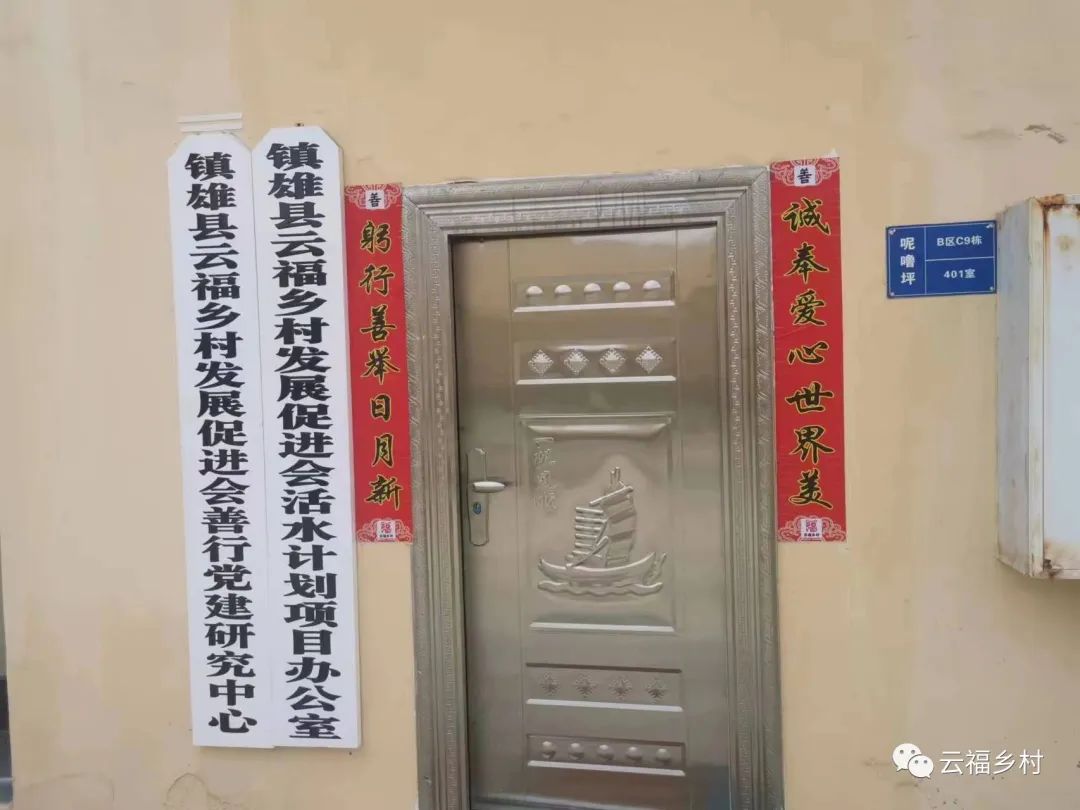 镇雄县云福乡村发展促进会善行党建研究中心
镇雄县云福乡村发展促进会活水计划项目办公室
善
躬行善举日月新
福
善
诚奉爱心世界美
福
一帆风顺
呢噜坪
B区C9栋
401室
云福乡村